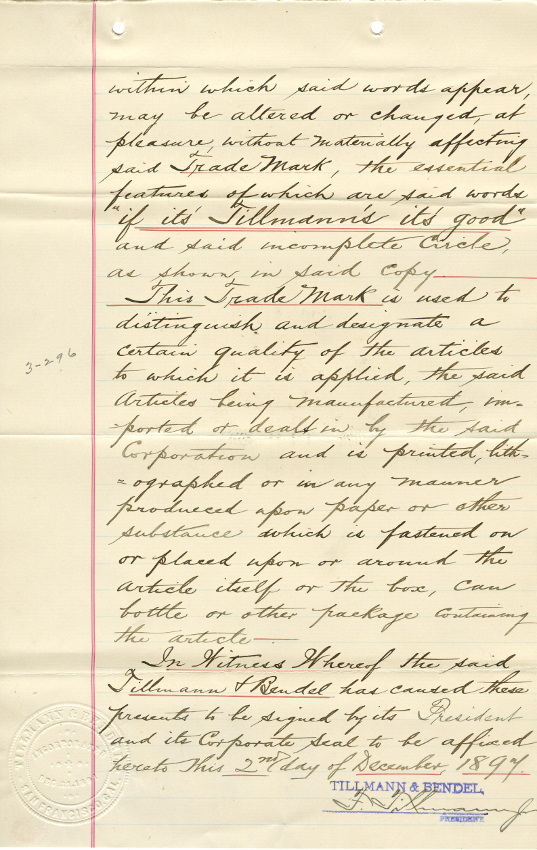 within which said words appear,
may be altered or changed, at
pleasure, without materially affecting
said Trade Mark, the essential
features of which are said words
"if its Tillmann's its good"
and said incomplete Circle,
as shown, in said copy
This Trade Mark is used to
distinguish and designate a
certain quality of the articles
3-296
to which it is applied, the said
Articles being manufactured, im-
ported or dealt in by the said
Corporation and is printed, lith-
=ographed or in any manner
produced upon paper or other
substance which is fastened on
or placed upon or around the
article itself or the box, can
bottle or other package containing
the article
In Witness Whereof the said
Tillmann & Bendel has caused these
presents to be signed by its President
and its Corporate Seal to be affixed
hereto this 2nd day of December, 1897.
TILLMANN & BENDEL
SAN FRANCISCO
TILLMANN & BENDEL,
F. Tillmann Jr
PRESIDENT